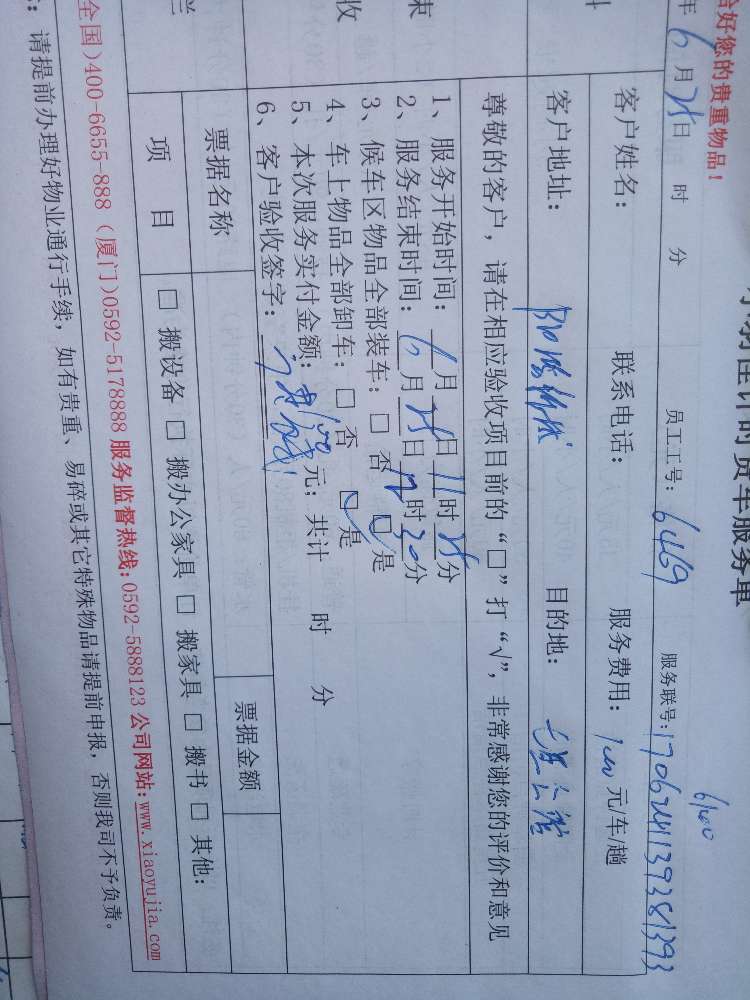 计时货车服务单
好您的贵重物品！
年6月25日 时 分 员工工号：6469 服务联号：1706241139381393
客户姓名： 联系电话： 服务费用： 元/车/趟
客户地址： 目的地：
尊敬的客户，请在相应验收项目前的“□”打“√”，非常感谢您的评价和意见
1、服务开始时间：6月25日11时25分
2、服务结束时间：6月25日12时30分
3、候车区物品全部装车：□ 否 □ 是
4、车上物品全部卸车：□ 否 □ 是
5、本次服务实付金额： 元；共计 时 分
6、客户验收签字：
票据名称 票据金额
项 目 □ 搬设备 □ 搬办公家具 □ 搬家具 □ 搬书 □ 其他：
全国)400-6655-888 (厦门)0592-5178888 服务监督热线：0592-5888123 公司网站：www.xiaoyujia.com
：请提前办理好物业通行手续，如有贵重、易碎或其它特殊物品请提前申报，否则我司不予负责。